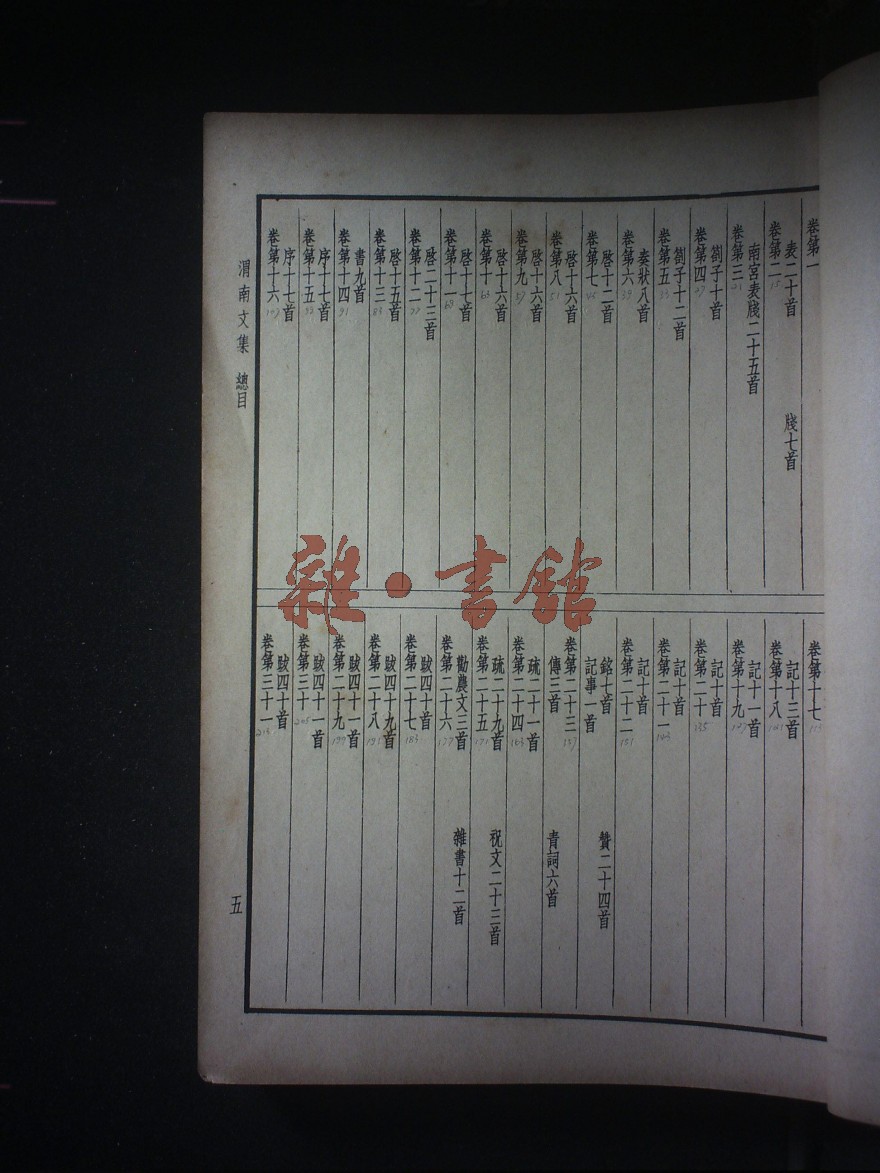 卷第一
表二十首 牋七首
卷第二
南宮表牋二十五首
卷第三
劄子十首
卷第四
劄子十二首
卷第五
奏狀八首
卷第六
啓十二首
卷第七
啓十六首
卷第八
啓十六首
卷第九
啓十六首
卷第十
啓十七首
卷第十一
啓二十三首
卷第十二
啓十五首
卷第十三
書九首
卷第十四
序十七首
卷第十五
序十七首
卷第十六
卷第十七
記十三首
卷第十八
記十一首
卷第十九
記十首
卷第二十
記十首
卷第二十一
記十首
卷第二十二
銘七首 贊二十四首
記事一首
卷第二十三
傳三首 青詞六首
疏二十一首
卷第二十四
疏二十九首 祝文二十三首
卷第二十五
勸農文三首 雜書十二首
卷第二十六
跋四十首
卷第二十七
跋四十九首
卷第二十八
跋四十一首
卷第二十九
跋四十一首
卷第三十
跋四十首
卷第三十一
渭南文集 總目
五
雜·書館